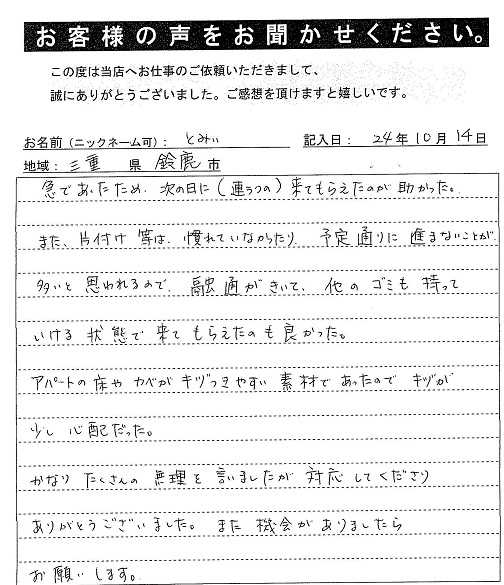 お客様の声をお聞かせください。
この度は当店へお仕事のご依頼いただきまして、
誠にありがとうございました。ご感想を頂けますと嬉しいです。
お名前(ニックネーム可): とみぃ 記入日: 24年10月14日
地域: 三重 県 鈴鹿 市
急であったため、次の日に(連うつの)来てもらえたのが助かった。
また、片付け等は、慣れていなかったり、予定通りに進まないことが
多いと思われるので、融通がきいて、他のゴミも持って
いける状態で来てもらえたのも良かった。
アパートの床やカベがキヅつきやすい素材であったのでキヅが
少し心配だった。
かなりたくさんの無理を言いましたが対応してくださり
ありがとうございました。また機会がありましたら
お願いします。